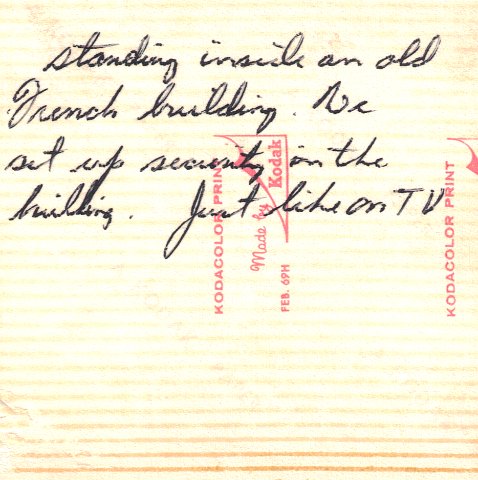 standing inside an old
French building. We
set up security in the
building. Just like on TV
KODACOLOR PRINT
Made by Kodak
FEB. 69H
KODACOLOR PRINT